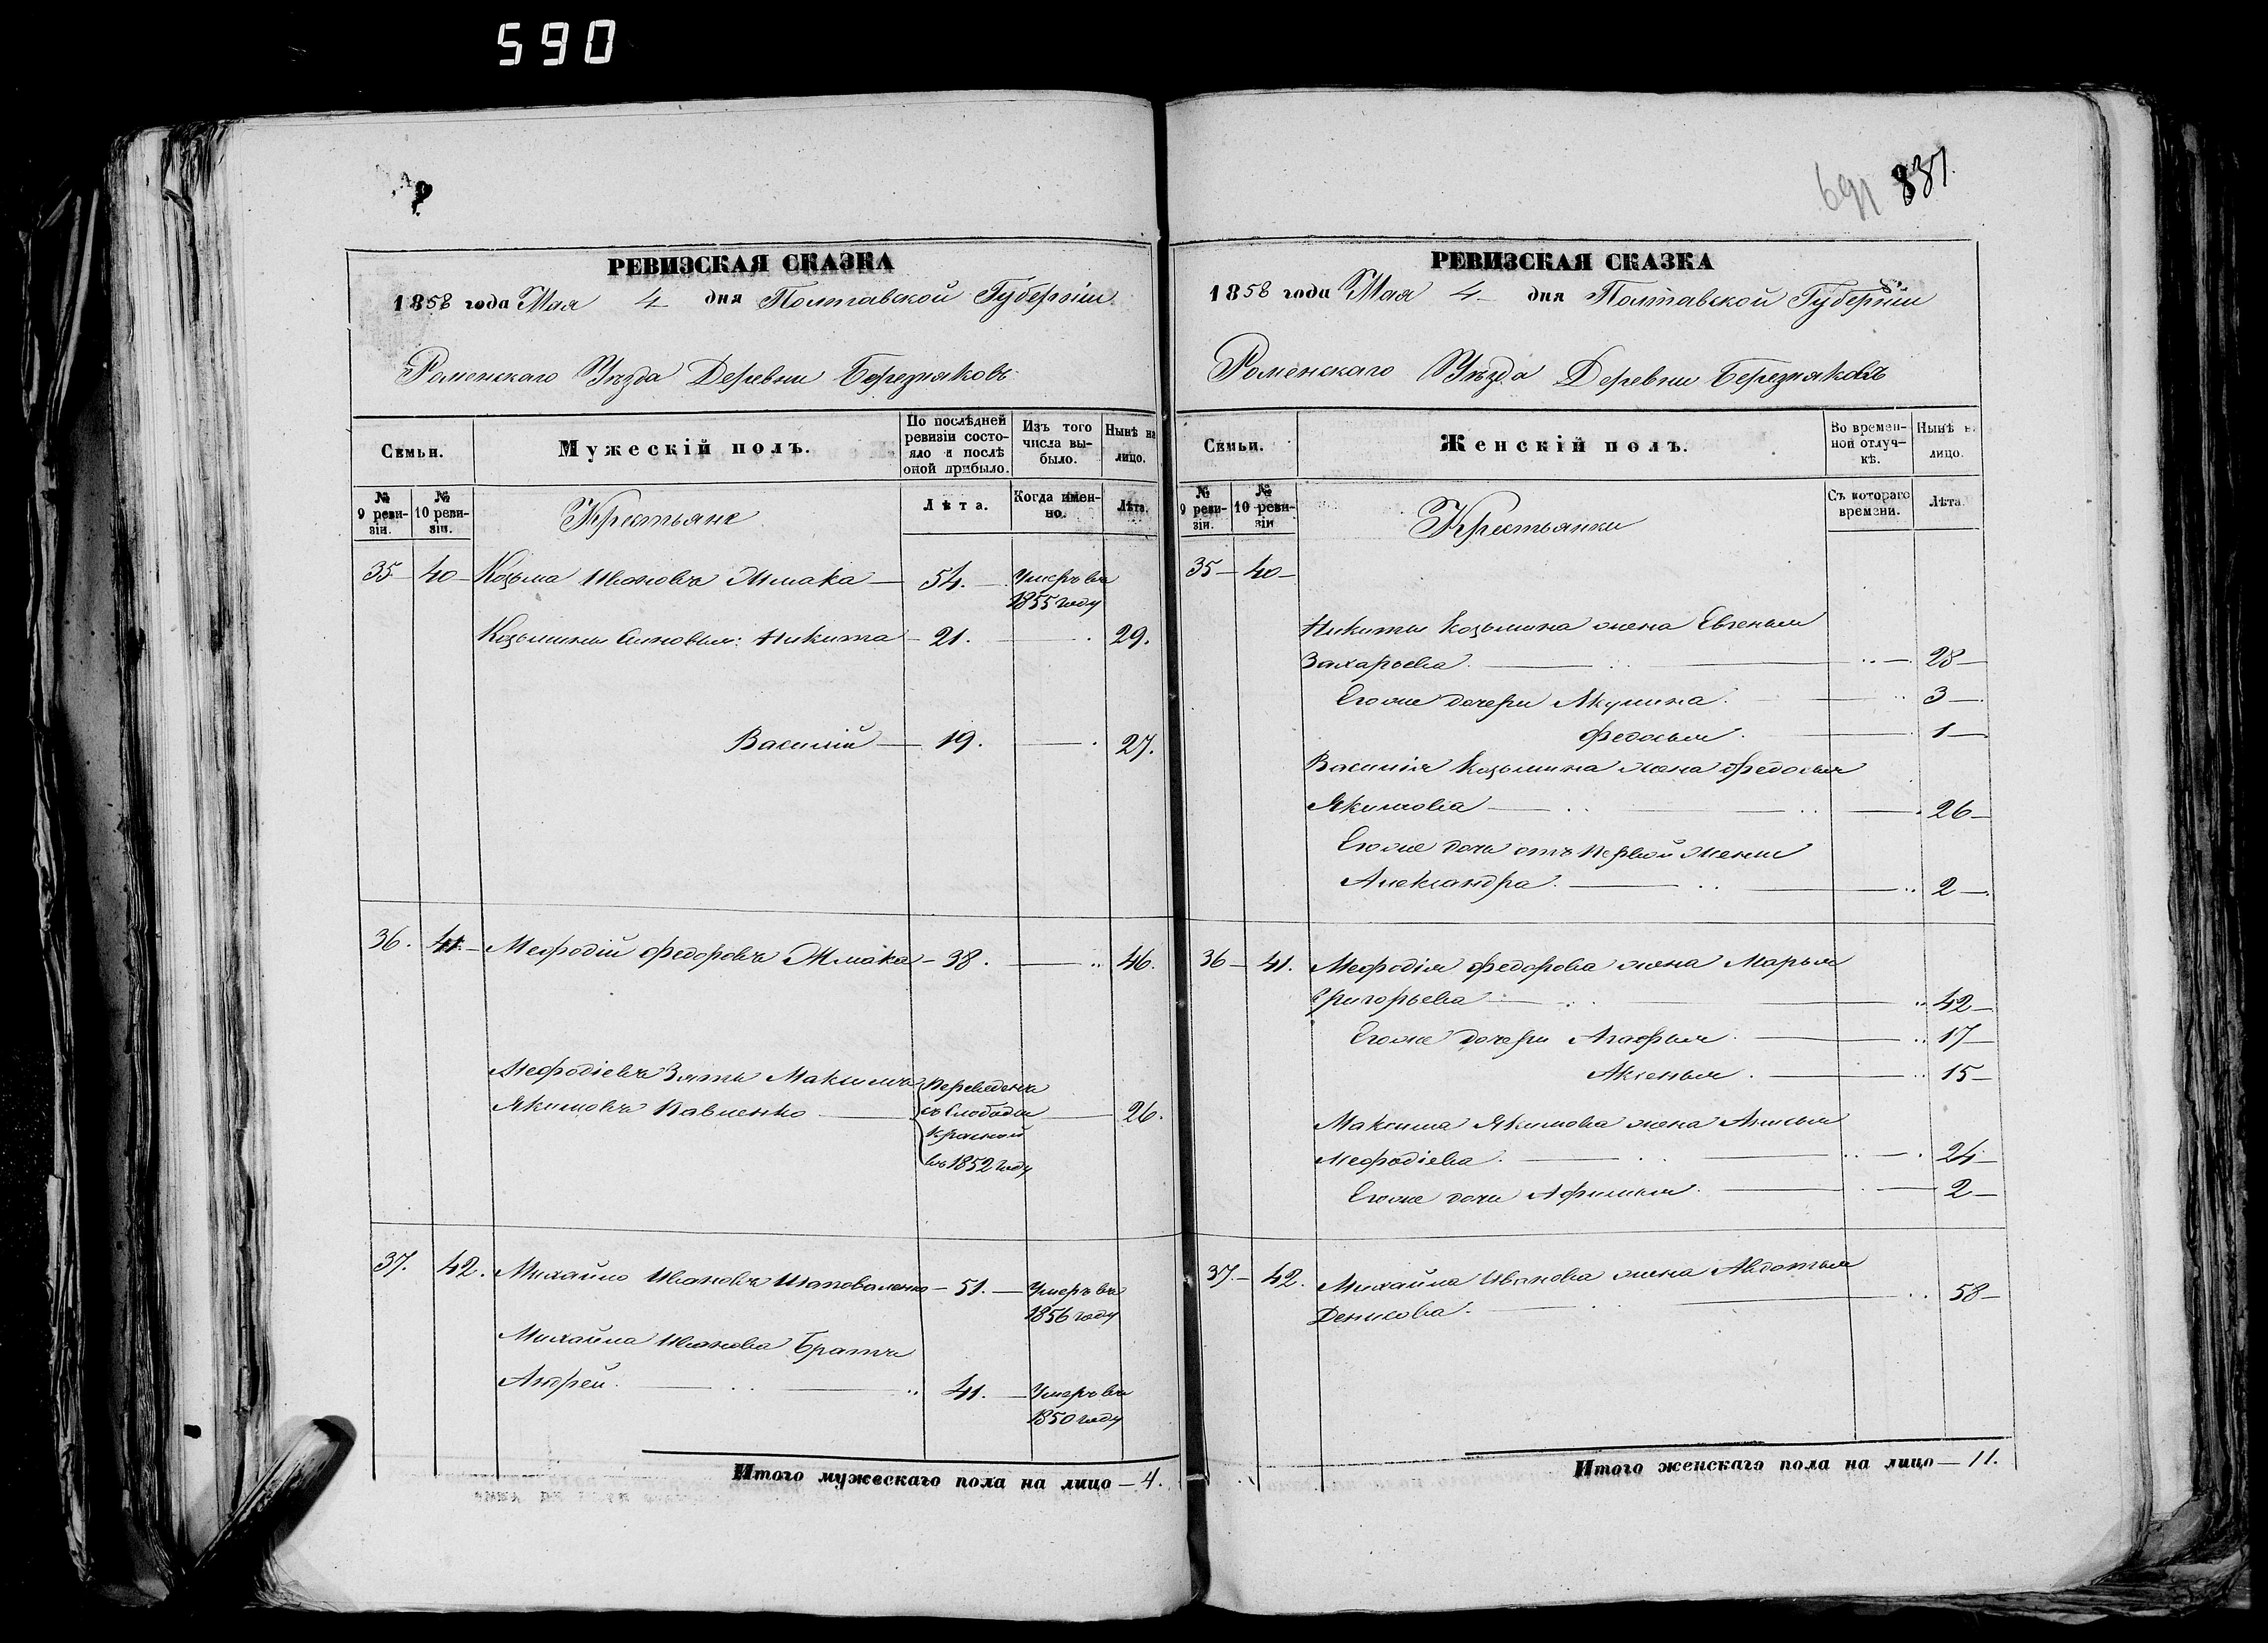 590
РЕВИЗСКАЯ СКАЗКА
1858 года Мая 4 дня Полтавской Губерніи
Роменскаго Уѣзда Деревни Березняковъ
Семьи.
Мужескій полъ.
По послѣдней ревизіи состояло и послѣ оной прибыло.
Изъ того числа выбыло.
Нынѣ на лицо.
№ 9 ревизіи.
№ 10 ревизіи.
Крестьяне
Лѣта.
Когда именно.
Лѣта.
35 – 40 – Козьма Ивановъ Жмака – 54. – Умеръ въ
1855 году
Козьмины сыновья: Никита – 21. – 29.
Василій – 19. – 27.
36. 41. – Мефодій Федоровъ Жмака – 38. – 46.
Мефодіевъ Зять Максимъ
Якимовъ Павленко – 26.
Переведенъ
съ Слободы
Красной
въ 1852 году
37. 42. Михайло Ивановъ Шаповаленко – 51. – Умеръ въ
1856 году
Михайла Иванова Братъ
Андрей. – 41. – Умеръ въ
1850 году
Итого мужескаго пола на лицо – 4.
691 831.
РЕВИЗСКАЯ СКАЗКА
1858 года Мая 4 дня Полтавской Губерніи
Роменскаго Уѣзда Деревни Березняковъ
Семьи.
Женскій полъ.
Во временной отлучкѣ.
Нынѣ на лицо.
№ 9 ревизіи.
№ 10 ревизіи
Крестьянки
Съ котораго времени.
Лѣта
35 – 40 –
Никиты Козьмина жена Евгенья
Захарьева. – 28 –
Его же дочери Акулина. – 3 –
Федосья. – 1 –
Василія Козьмина жена Федосья
Якимова – 26 –
Его же дочь отъ первой жены
Александра. – 2 –
36 – 41. Мефодія Федорова жена Марья
Григорьева – 42 –
Его же дочери Агафья – 17 –
Аксенья. – 15 –
Максима Якимова жена Анисья
Мефодіева. – 24 –
Его же дочь Афимья. – 2 –
37. – 42. Михайла Иванова жена Авдотья
Денисова. – 58 –
Итого женскаго пола на лицо – 11.